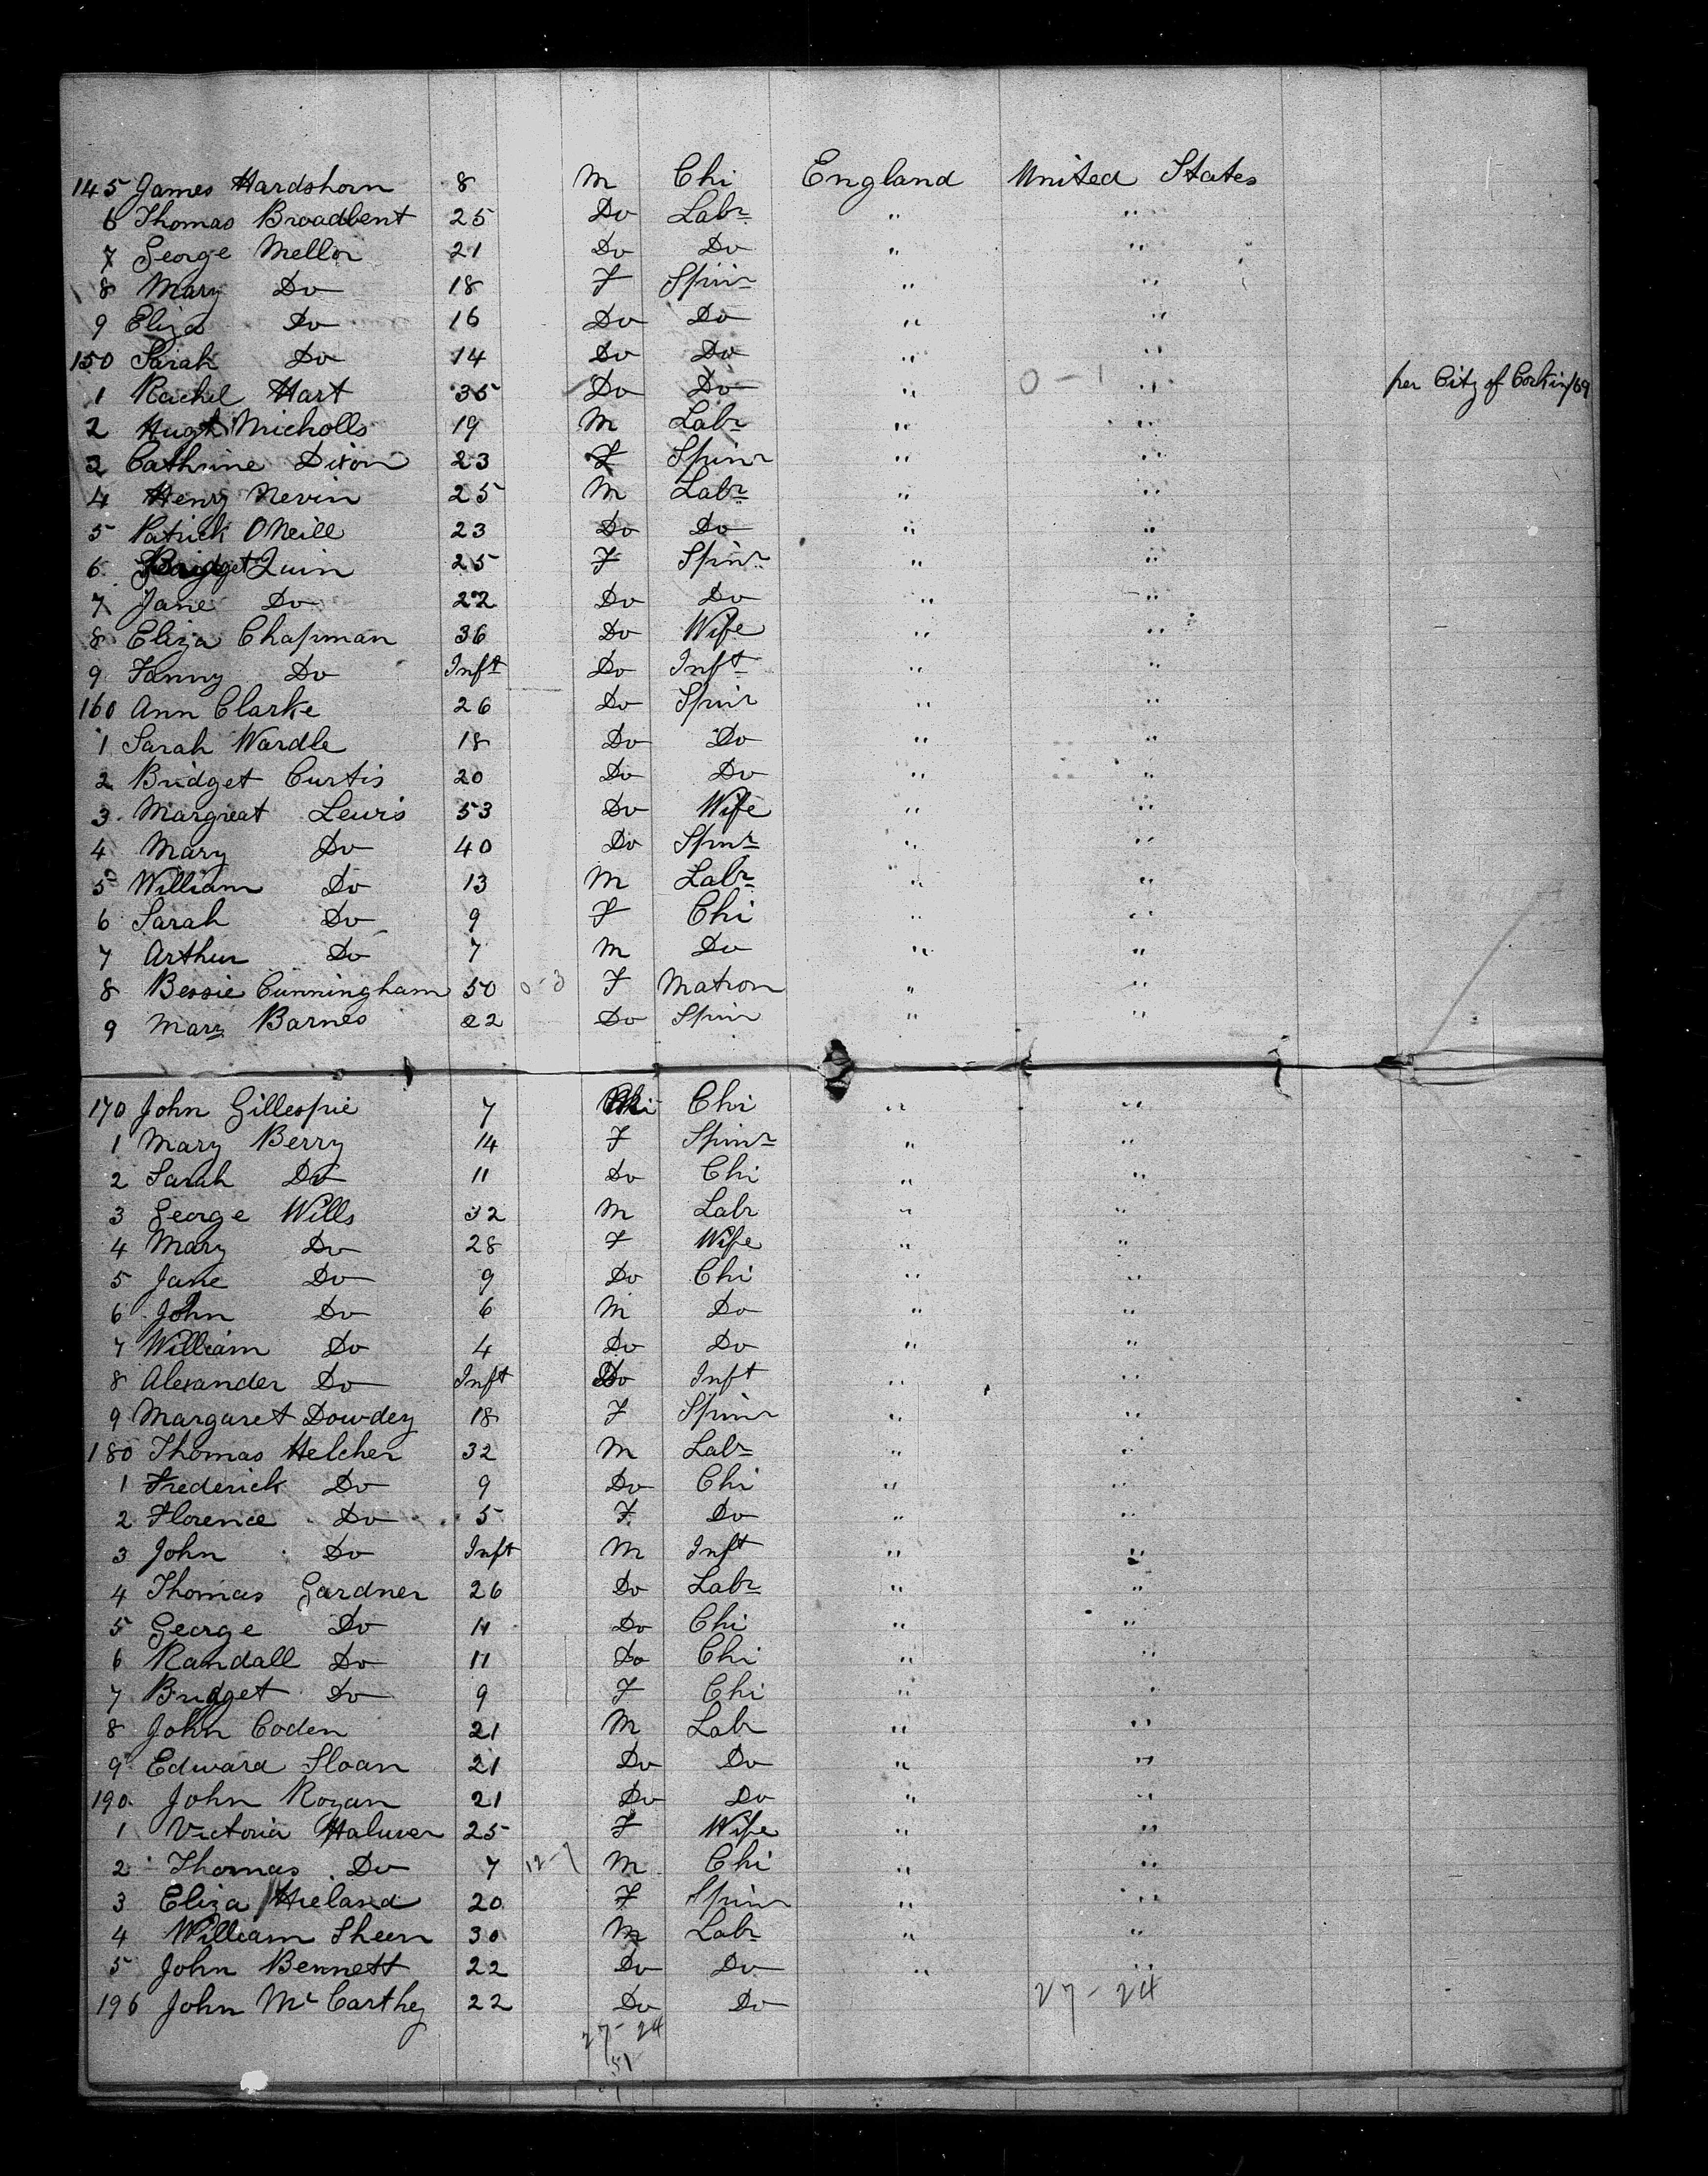 145 James Hardshorn 8 M Chi England United States
6 Thomas Broadbent 25 Do Labr " "
7 George Mellor 21 Do Do " "
8 Mary Do 18 F Spinr " "
9 Eliza Do 16 Do Do " "
150 Sarah Do 14 Do Do " "
1 Rachel Hart 35 Do Do " 0-1 " per City of Cork in/69
2 Hugh Nicholls 19 M Labr " "
3 Cathrine Dixon 23 F Spinr " "
4 Henry Nevin 25 M Labr " "
5 Patrick ONeill 23 Do Do " "
6 Bridget Quin 25 F Spinr " "
7 Jane Do 22 Do Do " "
8 Eliza Chapman 36 Do Wife " "
9 Fanny Do Inft Do Inft " "
160 Ann Clarke 26 Do Spinr " "
1 Sarah Wardle 18 Do Do " "
2 Bridget Curtis 20 Do Do " "
3 Margreat Lewis 53 Do Wife " "
4 Mary Do 40 Do Spinr " "
5 William Do 13 M Labr " "
6 Sarah Do 9 F Chi " "
7 Arthur Do 7 M Do " "
8 Bessie Cunningham 50 0-3 F Matron " "
9 Mary Barnes 22 Do Spinr " "
170 John Gillespie 7 Chi " "
1 Mary Berry 14 F Spinr " "
2 Sarah Do 11 Do Chi " "
3 George Wills 32 M Labr " "
4 Mary Do 28 F Wife " "
5 Jane Do 9 Do Chi " "
6 John Do 6 M Do " "
7 William Do 4 Do Do " "
8 Alexander Do Inft Do Inft " "
9 Margaret Dowdey 18 F Spinr " "
180 Thomas Helcher 32 M Labr " "
1 Frederick Do 9 Do Chi " "
2 Florence Do 5 F Do " "
3 John Do Inft M Inft " "
4 Thomas Gardner 26 Do Labr " "
5 George Do 11 Do Chi " "
6 Randall Do 11 Do Chi " "
7 Bridget Do 9 F Chi " "
8 John Coden 21 M Labr " "
9 Edward Sloan 21 Do Do " "
190 John Rogan 21 Do Do " "
1 Victoria 25 F Wife " "
2 Thomas Do 7 12-7 M Chi " "
3 Eliza Hieland 20 F Spinr " "
4 William Sheen 30 M Labr " "
5 John Bennett 22 Do Do " "
196 John McCarthey 22 Do Do 27-24
27-24
51